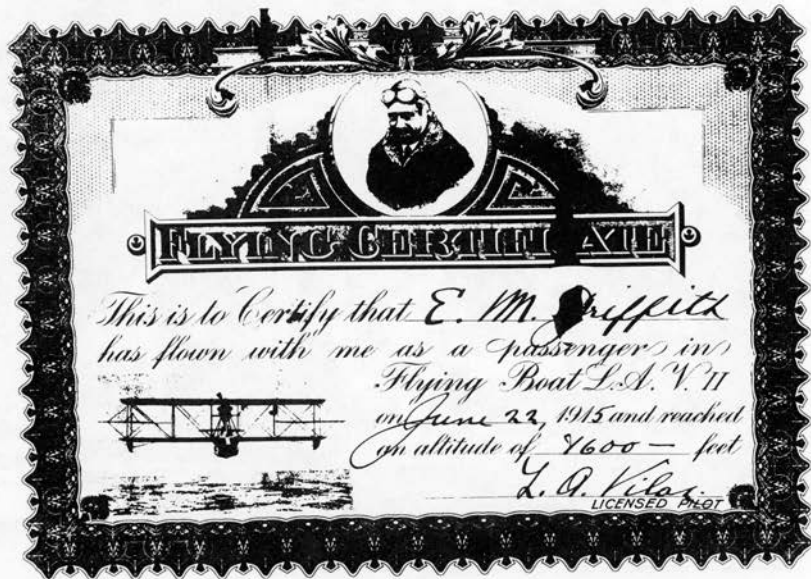 FLYING CERTIFICATE
This is to Certify that E. M. Griffith
has flown with me as a passenger in
Flying Boat L.A.V. II
on June 22, 1915 and reached
an altitude of feet
L. A. Vilas.
LICENSED PILOT